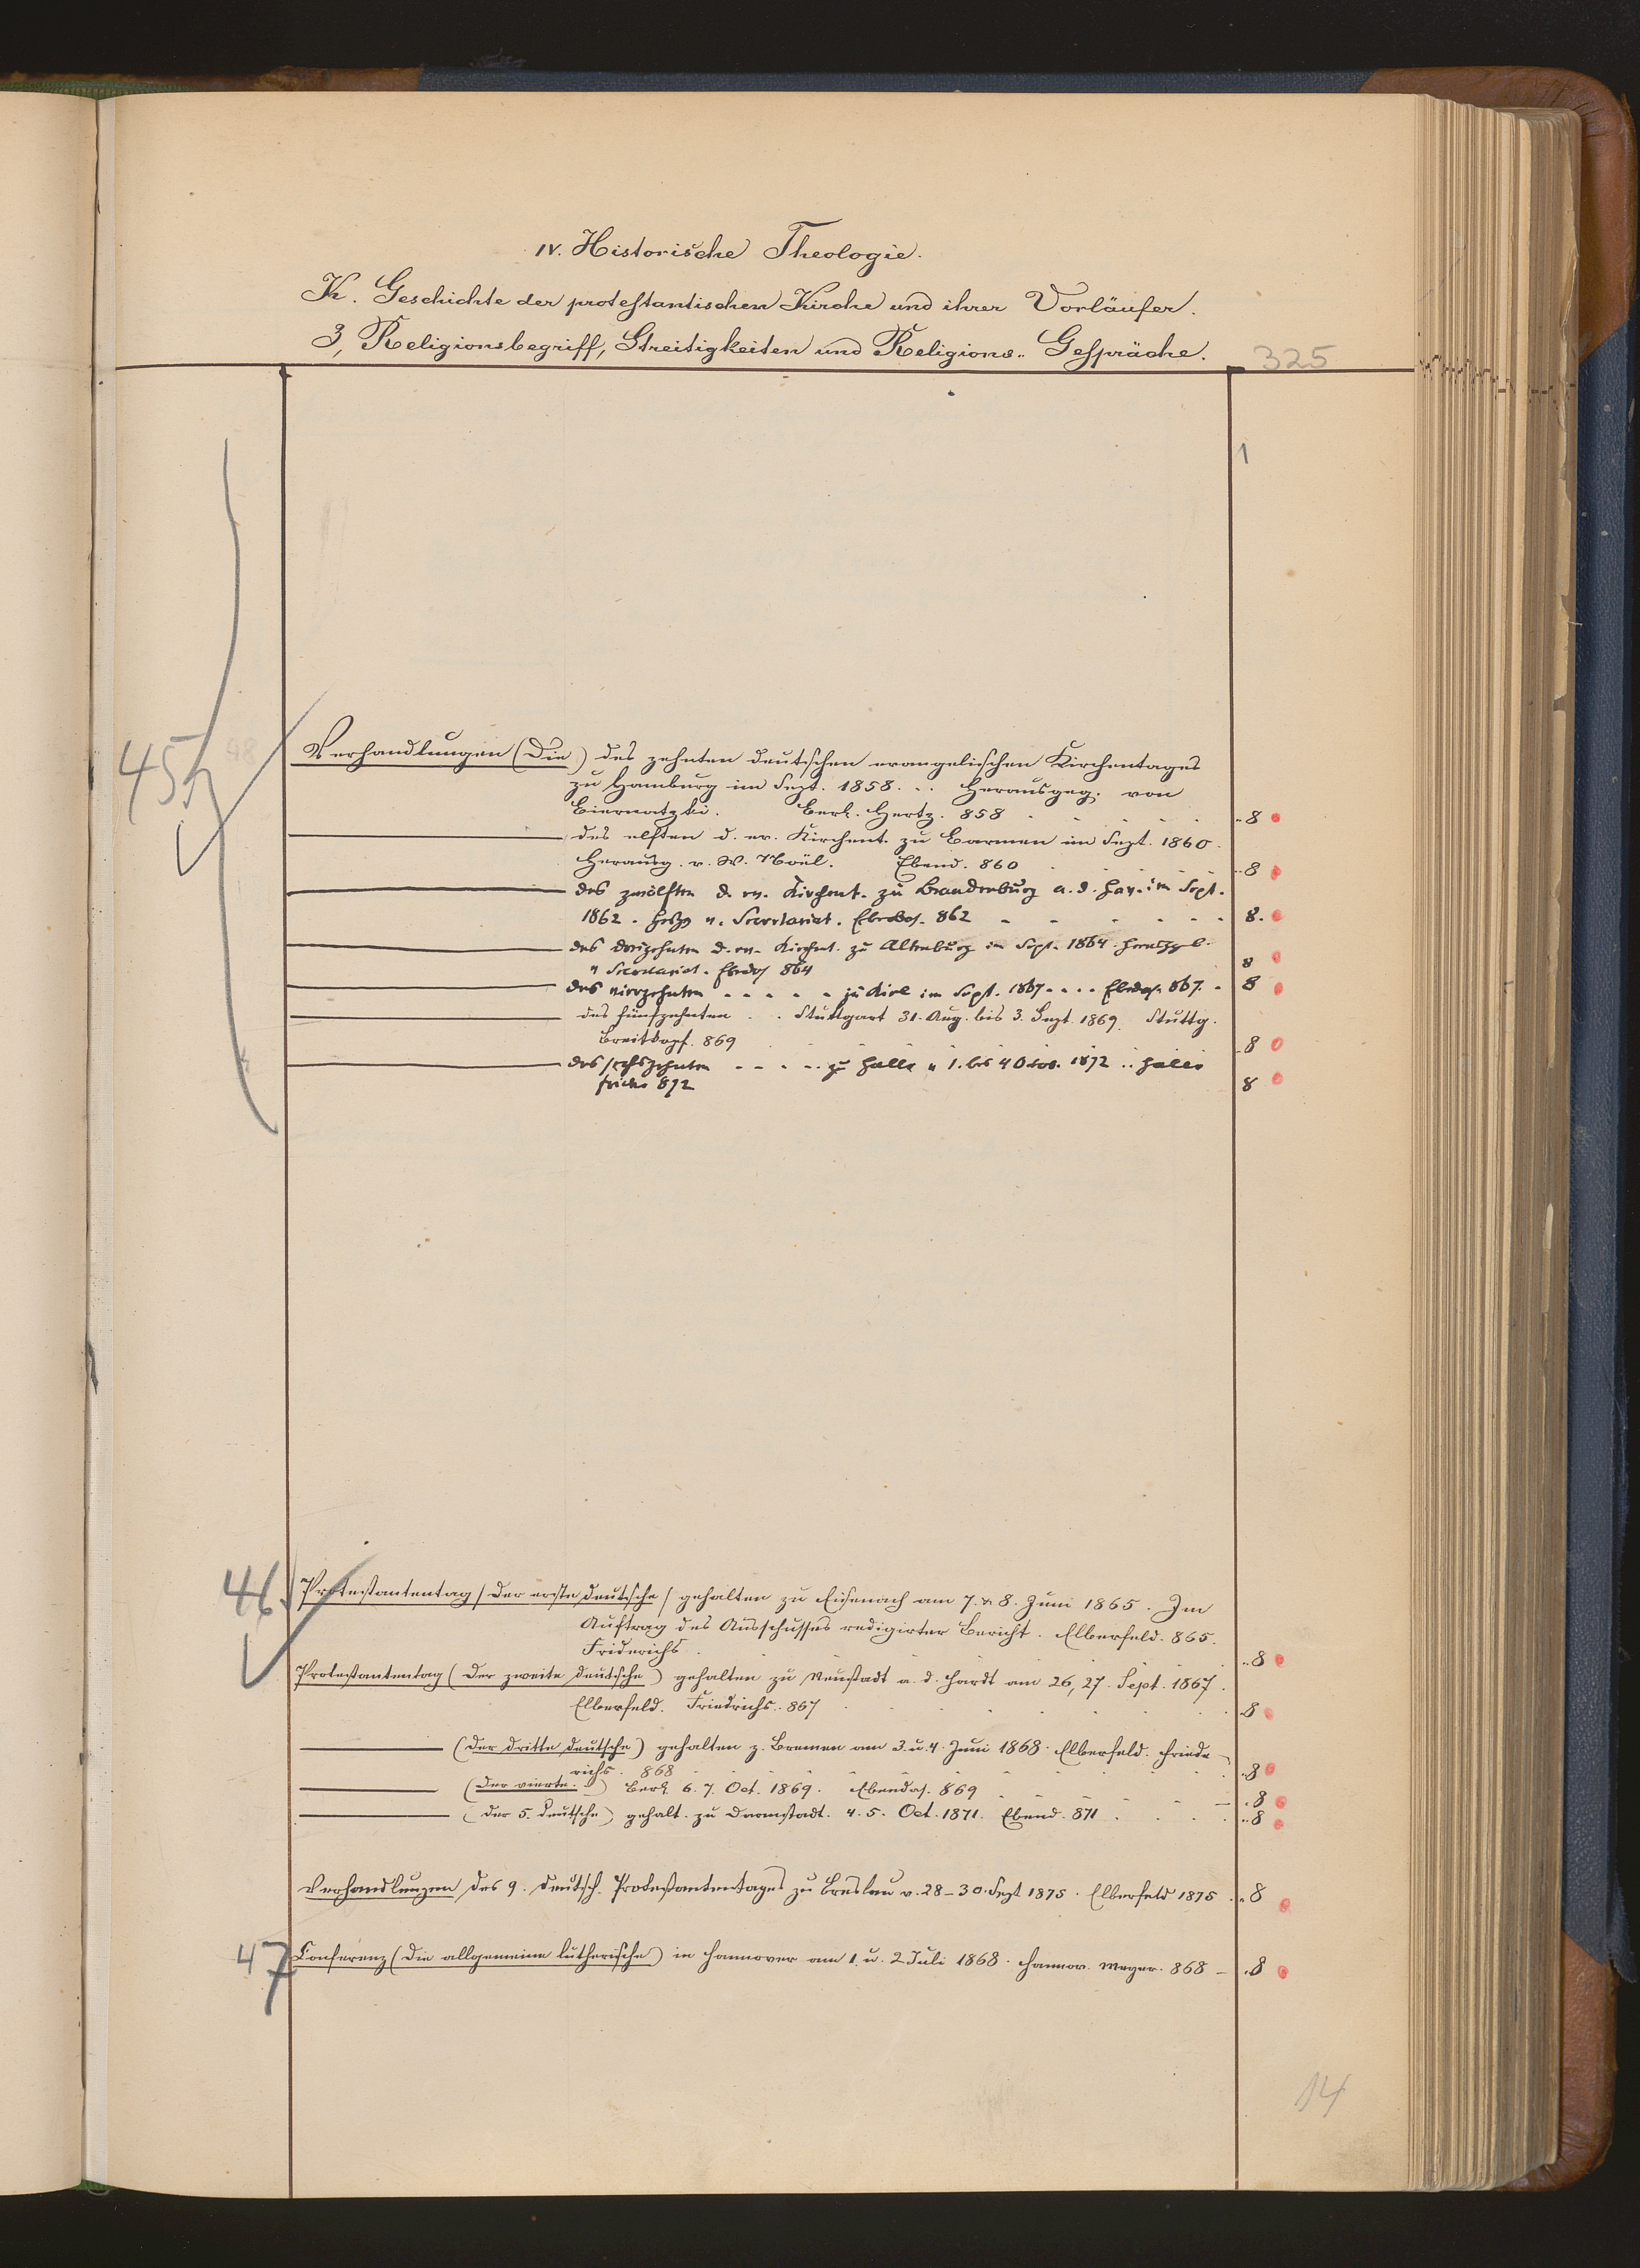 IV. Historische Theologie.
K. Geschichte der protestantischen Kirche und ihrer Vorläufer.
3, Religionsbegriff, Streitigkeiten und Religions-Gespräche.
325
1
45
98
Verhandlungen (Die) des zehnten deutschen evangelischen Kirchentages
zu Hamburg im Sept. 1858. .. Herausgeg. von
Biernatzki. Berl. Hertz. 858 8
des elften d. ev. Kirchent. zu Barmen im Sept. 1860.
Herausg. v. W. Noël. Ebend. 860 8
des zwölften d. ev. Kirchent. zu Brandenburg a. d. Hav. im Sept.
1862. v. Secretariat. Ebendas. 862 8.
des dreizehnten d. ev. Kirchent. zu Altenburg im Sept. 1864.
v Secretariat. Ebendas 864 8
des vierzehnten - - - - - zu Kiel im Sept. 1867 - - - Ebendas. 867. 8
des fünfzehnten . . Stuttgart 31. Aug. bis 3. Sept. 1869. Stuttg.
Breitkopf. 869 8
des sechszehnten - - - - zu Halle v 1. bis 4 Octob. 1872 .. Halle
Fricke 872 8
46.
Protestantentag (Der erste deutsche) gehalten zu Eisenach am 7. & 8. Juni 1865. Im
Auftrag des Ausschusses redigirter Bericht. Elberfeld. 865.
Friderichs. 8
Protestantentag (Der zweite deutsche) gehalten zu Neustadt a. d. Hardt am 26, 27. Sept. 1867.
Elberfeld. Friedrichs. 867 8
(Der dritte deutsche) gehalten z. Bremen am 3. u. 4. Juni 1868. Elberfeld. Friede-
richs. 868 8
(Der vierte..) Berl. 6. 7. Oct. 1869. Ebendas. 869 8
(Der 5. deutsche) gehalt. zu Darmstadt. 4. 5. Oct. 1871. Ebend. 871 8
Verhandlungen des 9. deutsch. Protestantentages zu Breslau v. 28-30. Sept 1875. Elberfeld 1875 8
47
Conferenz (Die allgemeine lutherische) in Hannover am 1. u. 2 Juli 1868. Hannov. Meyer. 868 - 8
14